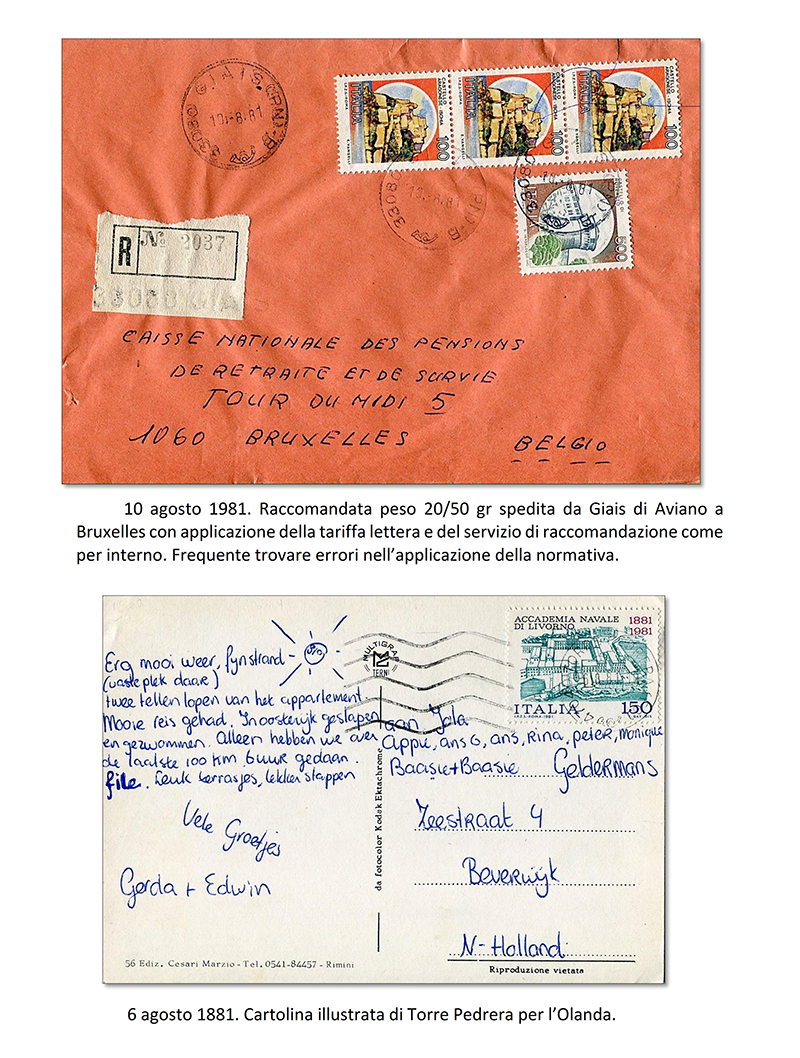 33080 GIAIS (PN) - B
10.-8.81
ITALIA
CASTELLO ARAGONESE
100
ITALIA
CASTELLO ARAGONESE
100
ITALIA
CASTELLO ARAGONESE
100
500
R
No 2037
33080 GIA
CAISSE NATIONALE DES PENSIONS
DE RETRAITE ET DE SURVIE
TOUR DU MIDI 5
1060 BRUXELLES
BELGIO
10 agosto 1981. Raccomandata peso 20/50 gr spedita da Giais di Aviano a
Bruxelles con applicazione della tariffa lettera e del servizio di raccomandazione come
per interno. Frequente trovare errori nell’applicazione della normativa.
ACCADEMIA NAVALE 1881
DI LIVORNO 1981
ITALIA 150
MULTIGRAF
TERNI
Erg mooi weer, fijn strand -
(vaste plek daar)
twee tellen lopen van het appartement.
Mooie reis gehad. In oostenrijk geslapen
en gezwommen. Alleen hebben we over
de laatste 100 km 6 uur gedaan.
file. Leuk terrasjes, lekker stappen
Vele Groetjes
Gerda + Edwin
aan
Appie, ans G, ans, Rina, peter, monique
Baasie + Baasie Geldermans
Zeestraat 4
Beverwijk
N-Holland
da fotocolor Kodak Ektachrome
56 Ediz. Cesari Marzio - Tel. 0541-84457 - Rimini
Riproduzione vietata
6 agosto 1881. Cartolina illustrata di Torre Pedrera per l’Olanda.